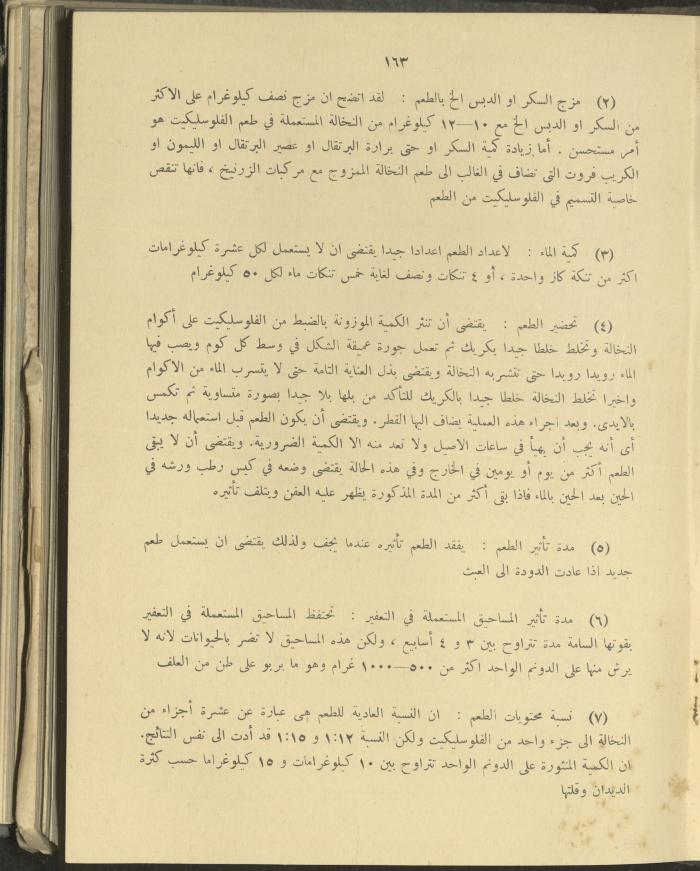 ١٦٣
(٢) مزج السكر او الدبس الخ بالطعم : لقد اتضح ان مزج نصف كيلوغرام على الاكثر
من السكر او الدبس الخ مع ١٠—١٢ كيلوغرام من النخالة المستعملة في طعم الفلوسليكيت هو
أمر مستحسن . أما زيادة كمية السكر او حتى برارة البرتقال او عصير البرتقال او الليمون او
الكريب فروت التى تضاف في الغالب الى طعم النخالة الممزوج مع مركبات الزرنيخ ، فانها تنقص
خاصية التسميم في الفلوسليكيت من الطعم
(٣) كمية الماء : لاعداد الطعم اعدادا جيدا يقتضى ان لا يستعمل لكل عشرة كيلوغرامات
اكثر من تنكة كاز واحدة ، أو ٤ تنكات ونصف لغاية خمس تنكات ماء لكل ٥٠ كيلوغرام
(٤) تحضير الطعم : يقتضى أن تنثر الكمية الموزونة بالضبط من الفلوسليكيت على أكوام
النخالة وتخلط خلطا جيدا بكريك ثم تعمل جورة عميقة الشكل في وسط كل كوم ويصب فيها
الماء رويدا رويدا حتى تتشربه النخالة ويقتضى بذل العناية التامة حتى لا يتسرب الماء من الاكوام
واخيرا تخلط النخالة خلطا جيدا بالكريك للتأكد من بلها بلا جيدا بصورة متساوية ثم تكمس
بالايدى. وبعد اجراء هذه العملية يضاف اليها القطر. ويقتضى أن يكون الطعم قبل استعماله جديدا
أى أنه يجب أن يهيأ في ساعات الاصيل ولا تعد منه الا الكمية الضرورية. ويقتضى أن لا يبقى
الطعم أكثر من يوم أو يومين في الخارج وفي هذه الحالة يقتضى وضعه في كيس رطب ورشه في
الحين بعد الحين بالماء فاذا بقى أكثر من المدة المذكورة يظهر عليه العفن ويتلف تأثيره
(٥) مدة تأثير الطعم : يفقد الطعم تأثيره عندما يجف ولذلك يقتضى ان يستعمل طعم
جديد اذا عادت الدودة الى العبث
(٦) مدة تأثير المساحيق المستعملة في التعفير : تحتفظ المساحيق المستعملة في التعفير
بقوتها السامة مدة تتراوح بين ٣ و ٤ أسابيع ، ولكن هذه المساحيق لا تضر بالحيوانات لانه لا
يرش منها على الدونم الواحد اكثر من ٥٠٠—١٠٠٠ غرام وهو ما يربو على طن من العلف
(٧) نسبة محتويات الطعم : ان النسبة العادية للطعم هى عبارة عن عشرة أجزاء من
النخالة الى جزء واحد من الفلوسليكيت ولكن النسبة ١:١٢ و ١:١٥ قد أدت الى نفس النتائج.
ان الكمية المنثورة على الدونم الواحد تتراوح بين ١٠ كيلوغرامات و ١٥ كيلوغراما حسب كثرة
الديدان وقلتها